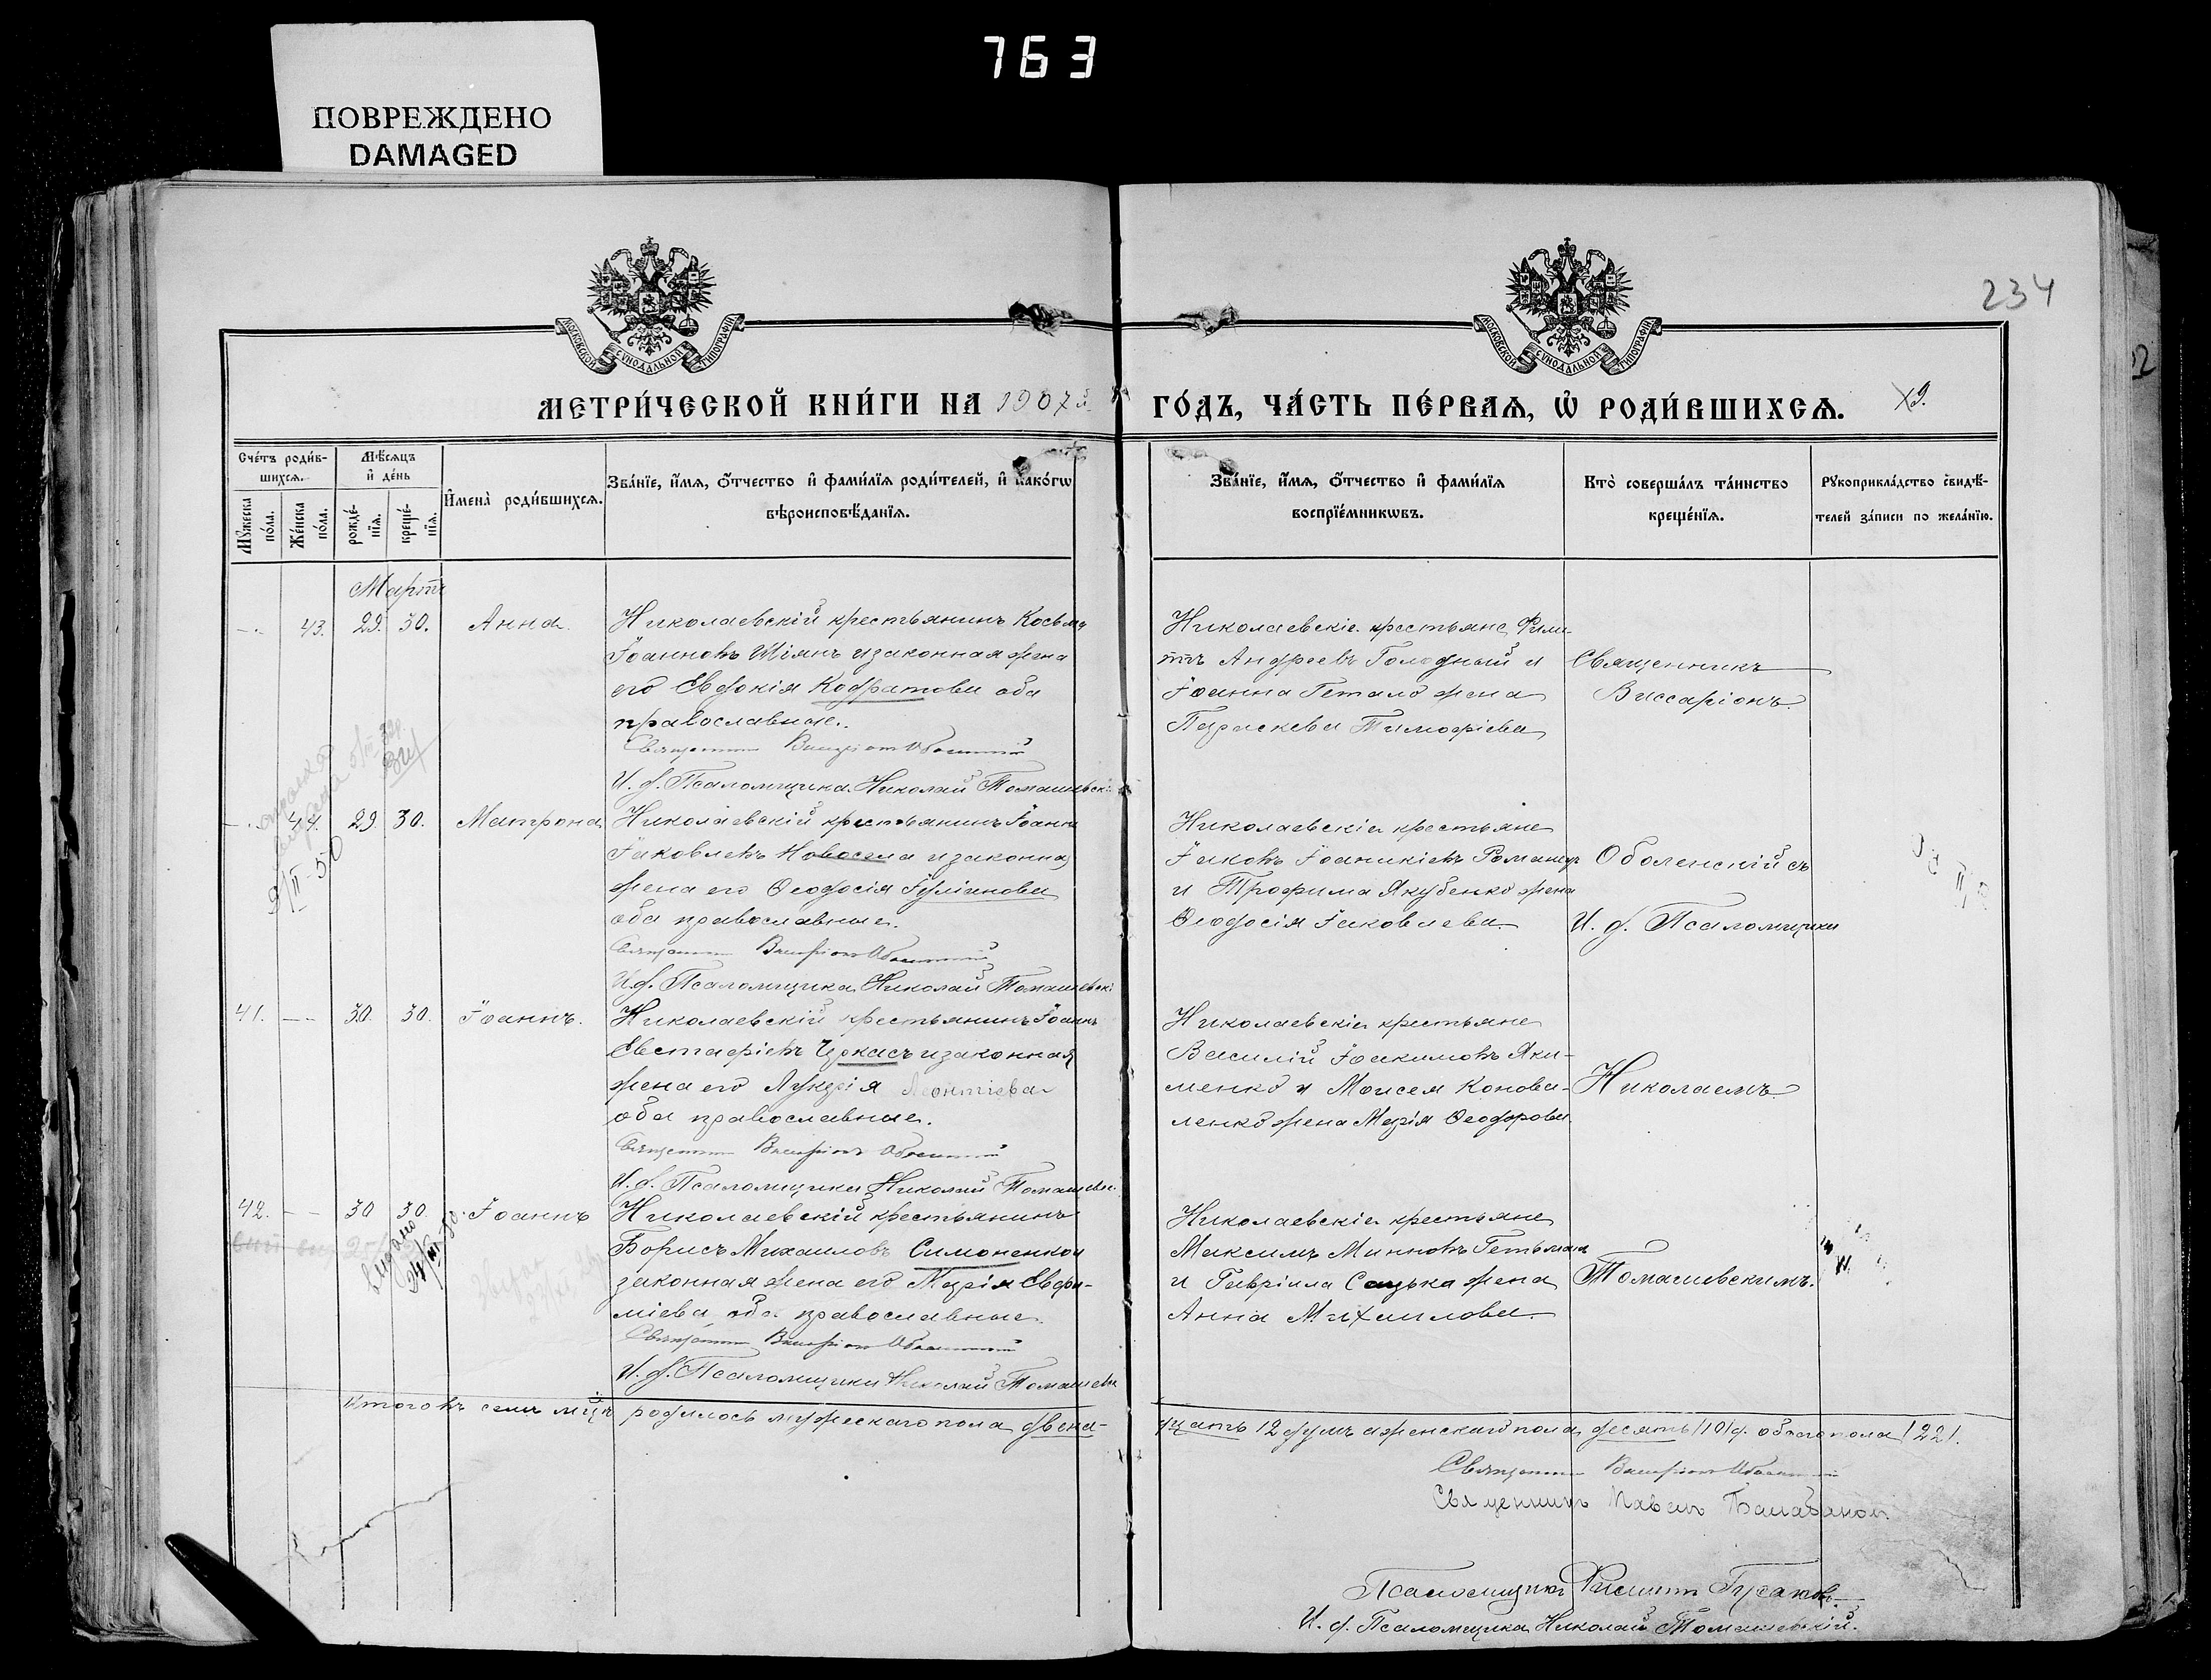 763
ПОВРЕЖДЕНО
DAMAGED
234
МОСКОВСКОЙ СѴНОДАЛЬНОЙ ТИПОГРАФІИ
МОСКОВСКОЙ СѴНОДАЛЬНОЙ ТИПОГРАФІИ
МЕТРИ́ЧЕСКОЙ КНИ́ГИ НА 1907 й
ГО́ДЪ, ЧА́СТЬ ПЕ́РВАЯ, Ѡ҆ РОДИ́ВШИХСЯ.
Сче́тъ роди́в-
шихся.
Мѣ́сяцъ
и҆ де́нь
Мꙋ́жеска по́ла.
Же́нска по́ла.
рожде́-
нїя.
креще́-
нїя.
И҆мена̀ роди́вшихся.
Зва́нїе, и҆́мя, ѻ҆́тчество и҆ фами́лїя роди́телей, и҆ како́гѡ
вѣроисповѣ́данїя.
Зва́нїе, и҆́мя, ѻ҆́тчество и҆ фами́лїя
воспрїе́мникѡвъ.
Кто̀ соверша́лъ та́инство
креще́нїя.
Рꙋкоприкла́дство свидѣ́-
телей за́писи по жела́нїю.
Мартъ
43. 29. 30. Анна.
Николаевскій крестьянинъ Косьма
Іоанновъ Шіянъ и законная жена
его Евдокія Кодратова оба
православные.
Священникъ Виссаріонъ Оболенскій
И. д. Псаломщика Николай Томашевскі
Николаевскіе крестьяне Фили-
ппъ Андреевъ Голодный и
Іоанна Гетало жена
Параскева Тимофіева
Священникъ
Виссаріонъ
44. 29. 30. Матрона
Николаевскій крестьянинъ Іоаннъ
Іаковлевъ Новосела и законная
жена его Ѳеодосія Іуліанова
оба православные.
Священникъ Виссаріонъ Оболенскій
И. д. Псаломщика Николай Томашевскі
9/II - 50
Николаевскіе крестьяне
Іаковъ Іоаникіевъ Романецъ
и Трофима Якубенко жена
Ѳеодосія Іаковлева
Оболенскій съ
И. д. Псаломщика
41. 30. 30. Іоаннъ.
Николаевскій крестьянинъ Іоаннъ
Евстафіевъ Черкасъ и законная
жена его Лукерія Леонтіева
оба православные.
Священникъ Виссаріонъ Оболенскій
И. д. Псаломщика Николай Томашевс
Николаевскіе крестьяне
Василій Іоакимовъ Яки-
менко и Моисея Конова-
ленко жена Марія Ѳеодорова
Николаемъ
42. 30 30. Іоаннъ
Николаевскій крестьянинъ
Борисъ Михаиловъ Симоненко и
законная жена его Марія Евфи-
міева оба православные.
Священникъ Виссаріонъ Оболенскій
И. д. Псаломщика Николай Томашевс
Николаевскіе крестьяне
Максимъ Минновъ Гетьман
и Гавріила Сацька жена
Анна Михаилова.
Томашевскимъ.
Итого въ семъ м-цѣ родилось мужескаго пола двена-
дцать 12 душъ а женскаго пола десять /10/ д. обоего пола /22/.
Священникъ Виссаріонъ Оболенскій
Священникъ Павелъ
Псаломщикъ Филиппъ Гусаковъ
И. д. Псаломщика Николай Томашевскій.